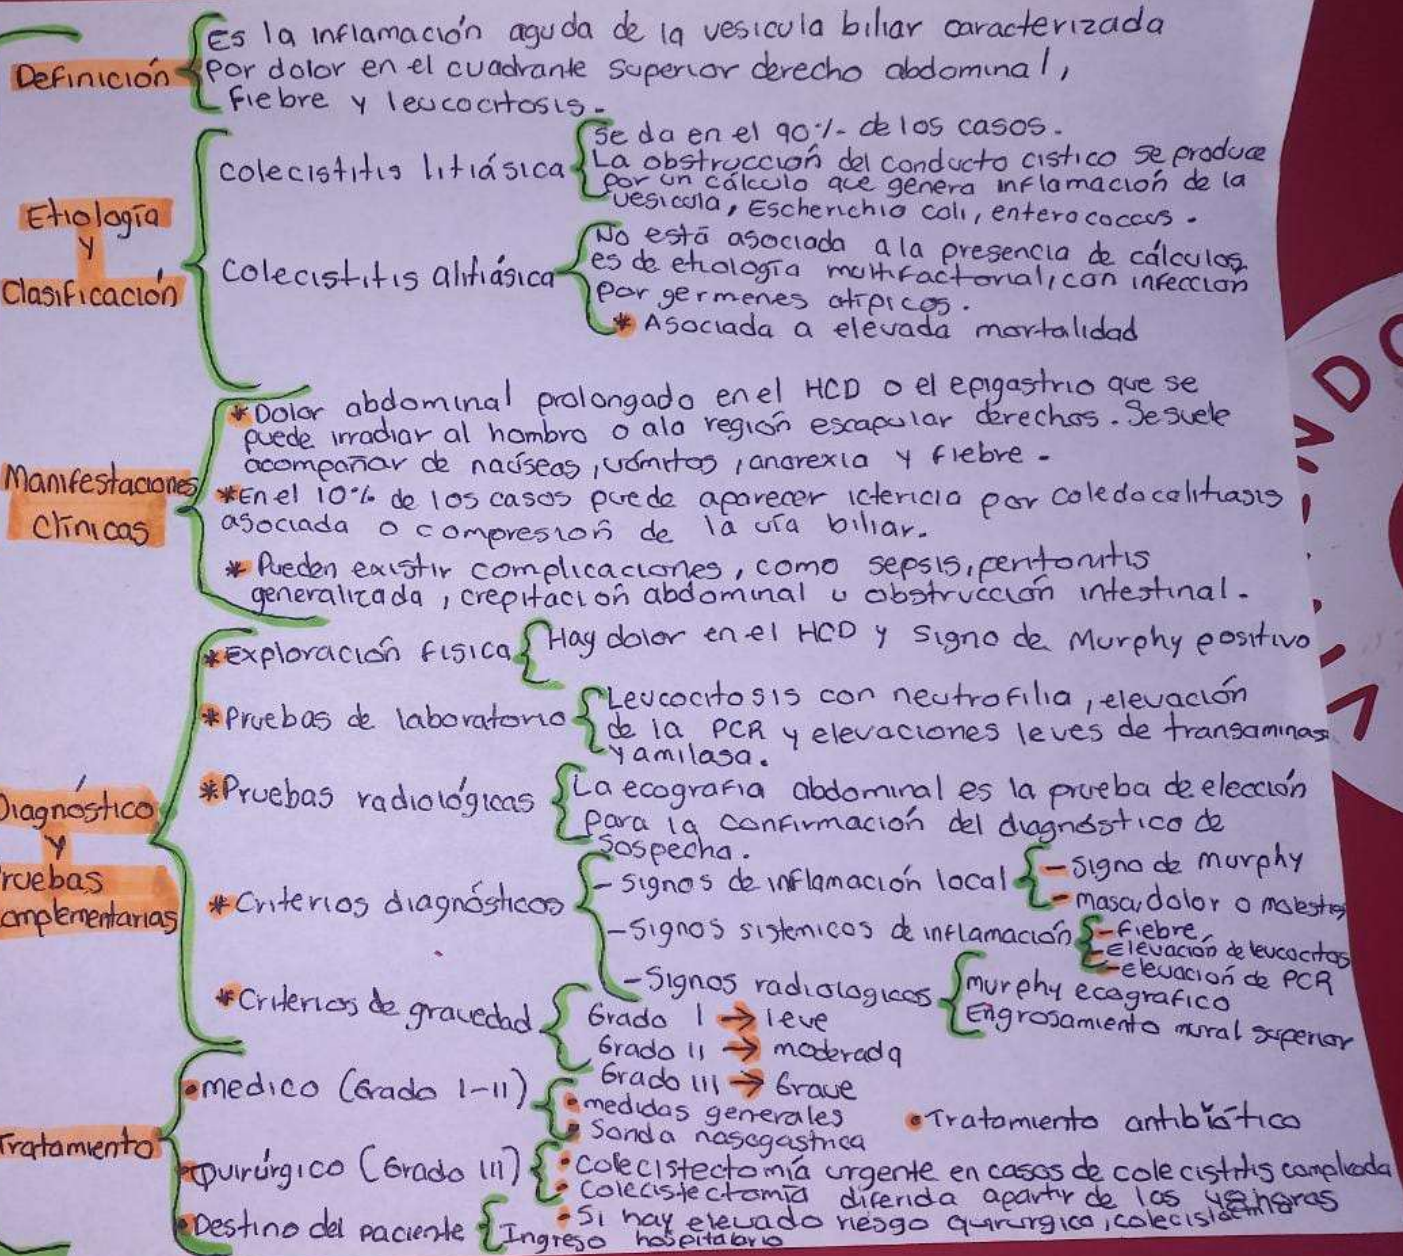 Definición
Es la inflamación aguda de la vesicula biliar caracterizada
por dolor en el cuadrante superior derecho abdominal,
fiebre y leucocitosis.
Etiología
y
Clasificación
colecistitis litiásica
Se da en el 90% de los casos.
La obstrucción del conducto cistico se produce
por un cálculo que genera inflamación de la
vesicula, Escherichia coli, enterococcus.
Colecistitis alitiásica
No está asociada a la presencia de cálculos,
es de etiología multifactorial, con infección
por germenes atipicos.
* Asociada a elevada mortalidad
Manifestaciones
Clínicas
*Dolor abdominal prolongado en el HCD o el epigastrio que se
puede irradiar al hombro o ala región escapular derechos. Se suele
acompañar de naúseas, vómitos, anorexia y fiebre.
*En el 10% de los casos puede aparecer ictericia por coledocolitiasis
asociada o compresión de la vía biliar.
* Pueden existir complicaciones, como sepsis, peritonitis
generalizada, crepitación abdominal u obstrucción intestinal.
Diagnóstico
y
ruebas
omplementarias
*exploración fisica
Hay dolor en el HCD y signo de Murphy positivo
*Pruebas de laboratorio
Leucocitosis con neutrofilia, elevación
de la PCR y elevaciones leves de transaminas
y amilasa.
*Pruebas radiológicas
La ecografia abdominal es la prueba de elección
para la confirmación del diagnóstico de
sospecha.
*Criterios diagnósticos
- signos de inflamación local
- signo de murphy
- masa, dolor o molestia
- signos sistemicos de inflamación
- fiebre
- Elevación de leucocitos
- elevación de PCR
- Signos radiologicos
murphy ecografico
Engrosamiento mural superior
*Criterios de gravedad
Grado I → leve
Grado II → moderada
Grado III → Grave
Tratamiento
•medico (Grado I-II)
•medidas generales
•Tratamiento antibiótico
•Sonda nasogastrica
•quirúrgico (Grado III)
•colecistectomía urgente en casos de colecistitis complicada
•Colecistectomía diferida apartir de las 48 horas
•Si hay elevado riesgo quirurgico,
•Destino del paciente
Ingreso hospitalario